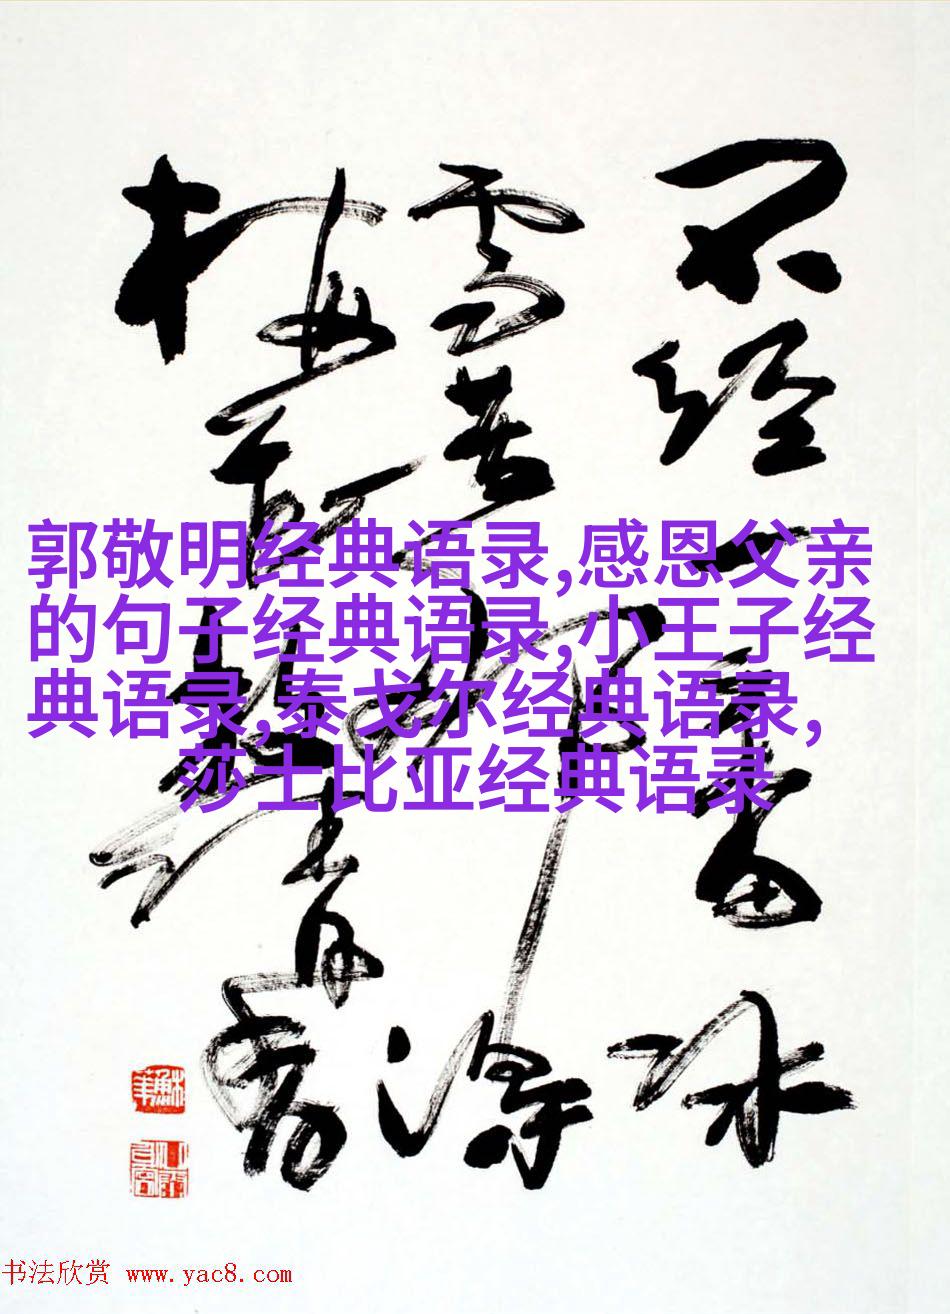 不经一番冰
雪苦那得
梅清香
郭敬明经典语录,感恩父亲
的句子经典语录,小王子经
典语录,泰戈尔经典语录,
莎士比亚经典语录
书法欣赏 www.yac8.com